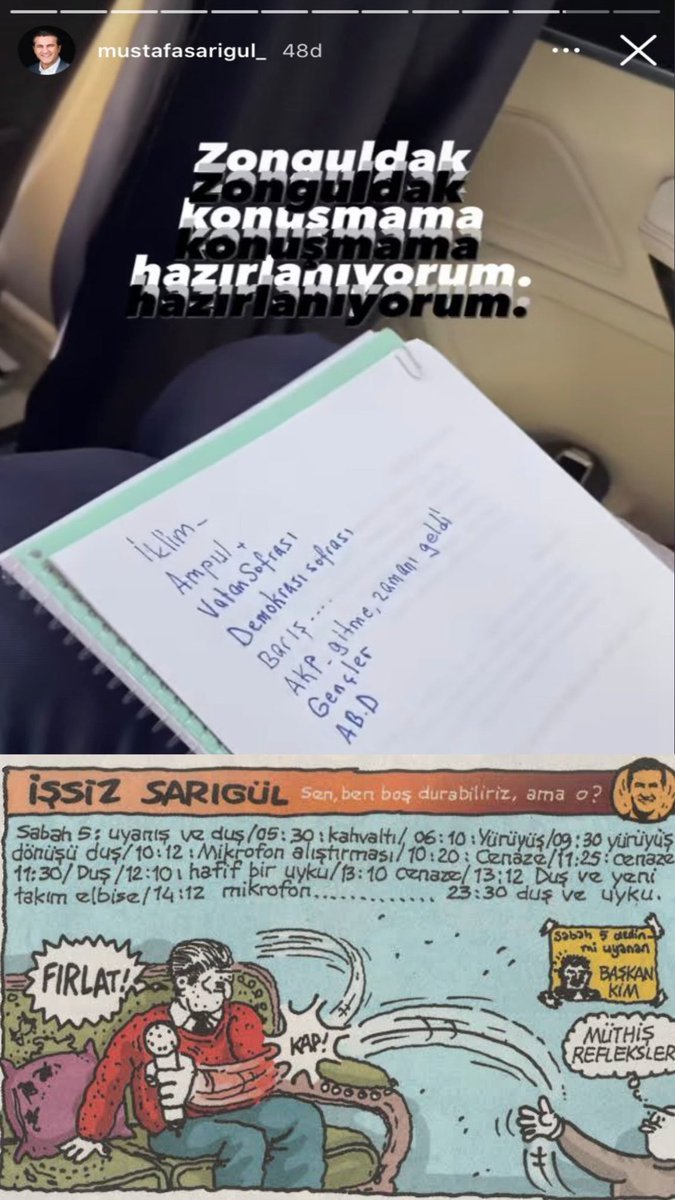 mustafasarigul_ 48d
Zonguldak
konuşmama
hazırlanıyorum.
İklim_
Ampul +
Vatan Sofrası
Demokrası sofrası
Barış ....
AKP - gitme, zamanı geldi
Gençler
AB.D
İŞSİZ SARIGÜL Sen, ben boş durabiliriz, ama o?
Sabah 5: uyanış ve duş/05:30: kahvaltı/ 06:10: Yürüyüş/09:30 yürüyüş
dönüşü duş/10:12: Mikrofon alıştırması/10:20: Cenaze/11:25: cenaze
11:30/ Duş /12:10: hafif bir uyku/13:10 cenaze/ 13:12 Duş ve yeni
takım elbise/14:12 mikrofon.............. 23:30 duş ve uyku.
Sabah 5 dedin
mi uyanan
BAŞKAN
KİM
FIRLAT!
KAP!
MÜTHİŞ
REFLEKSLER